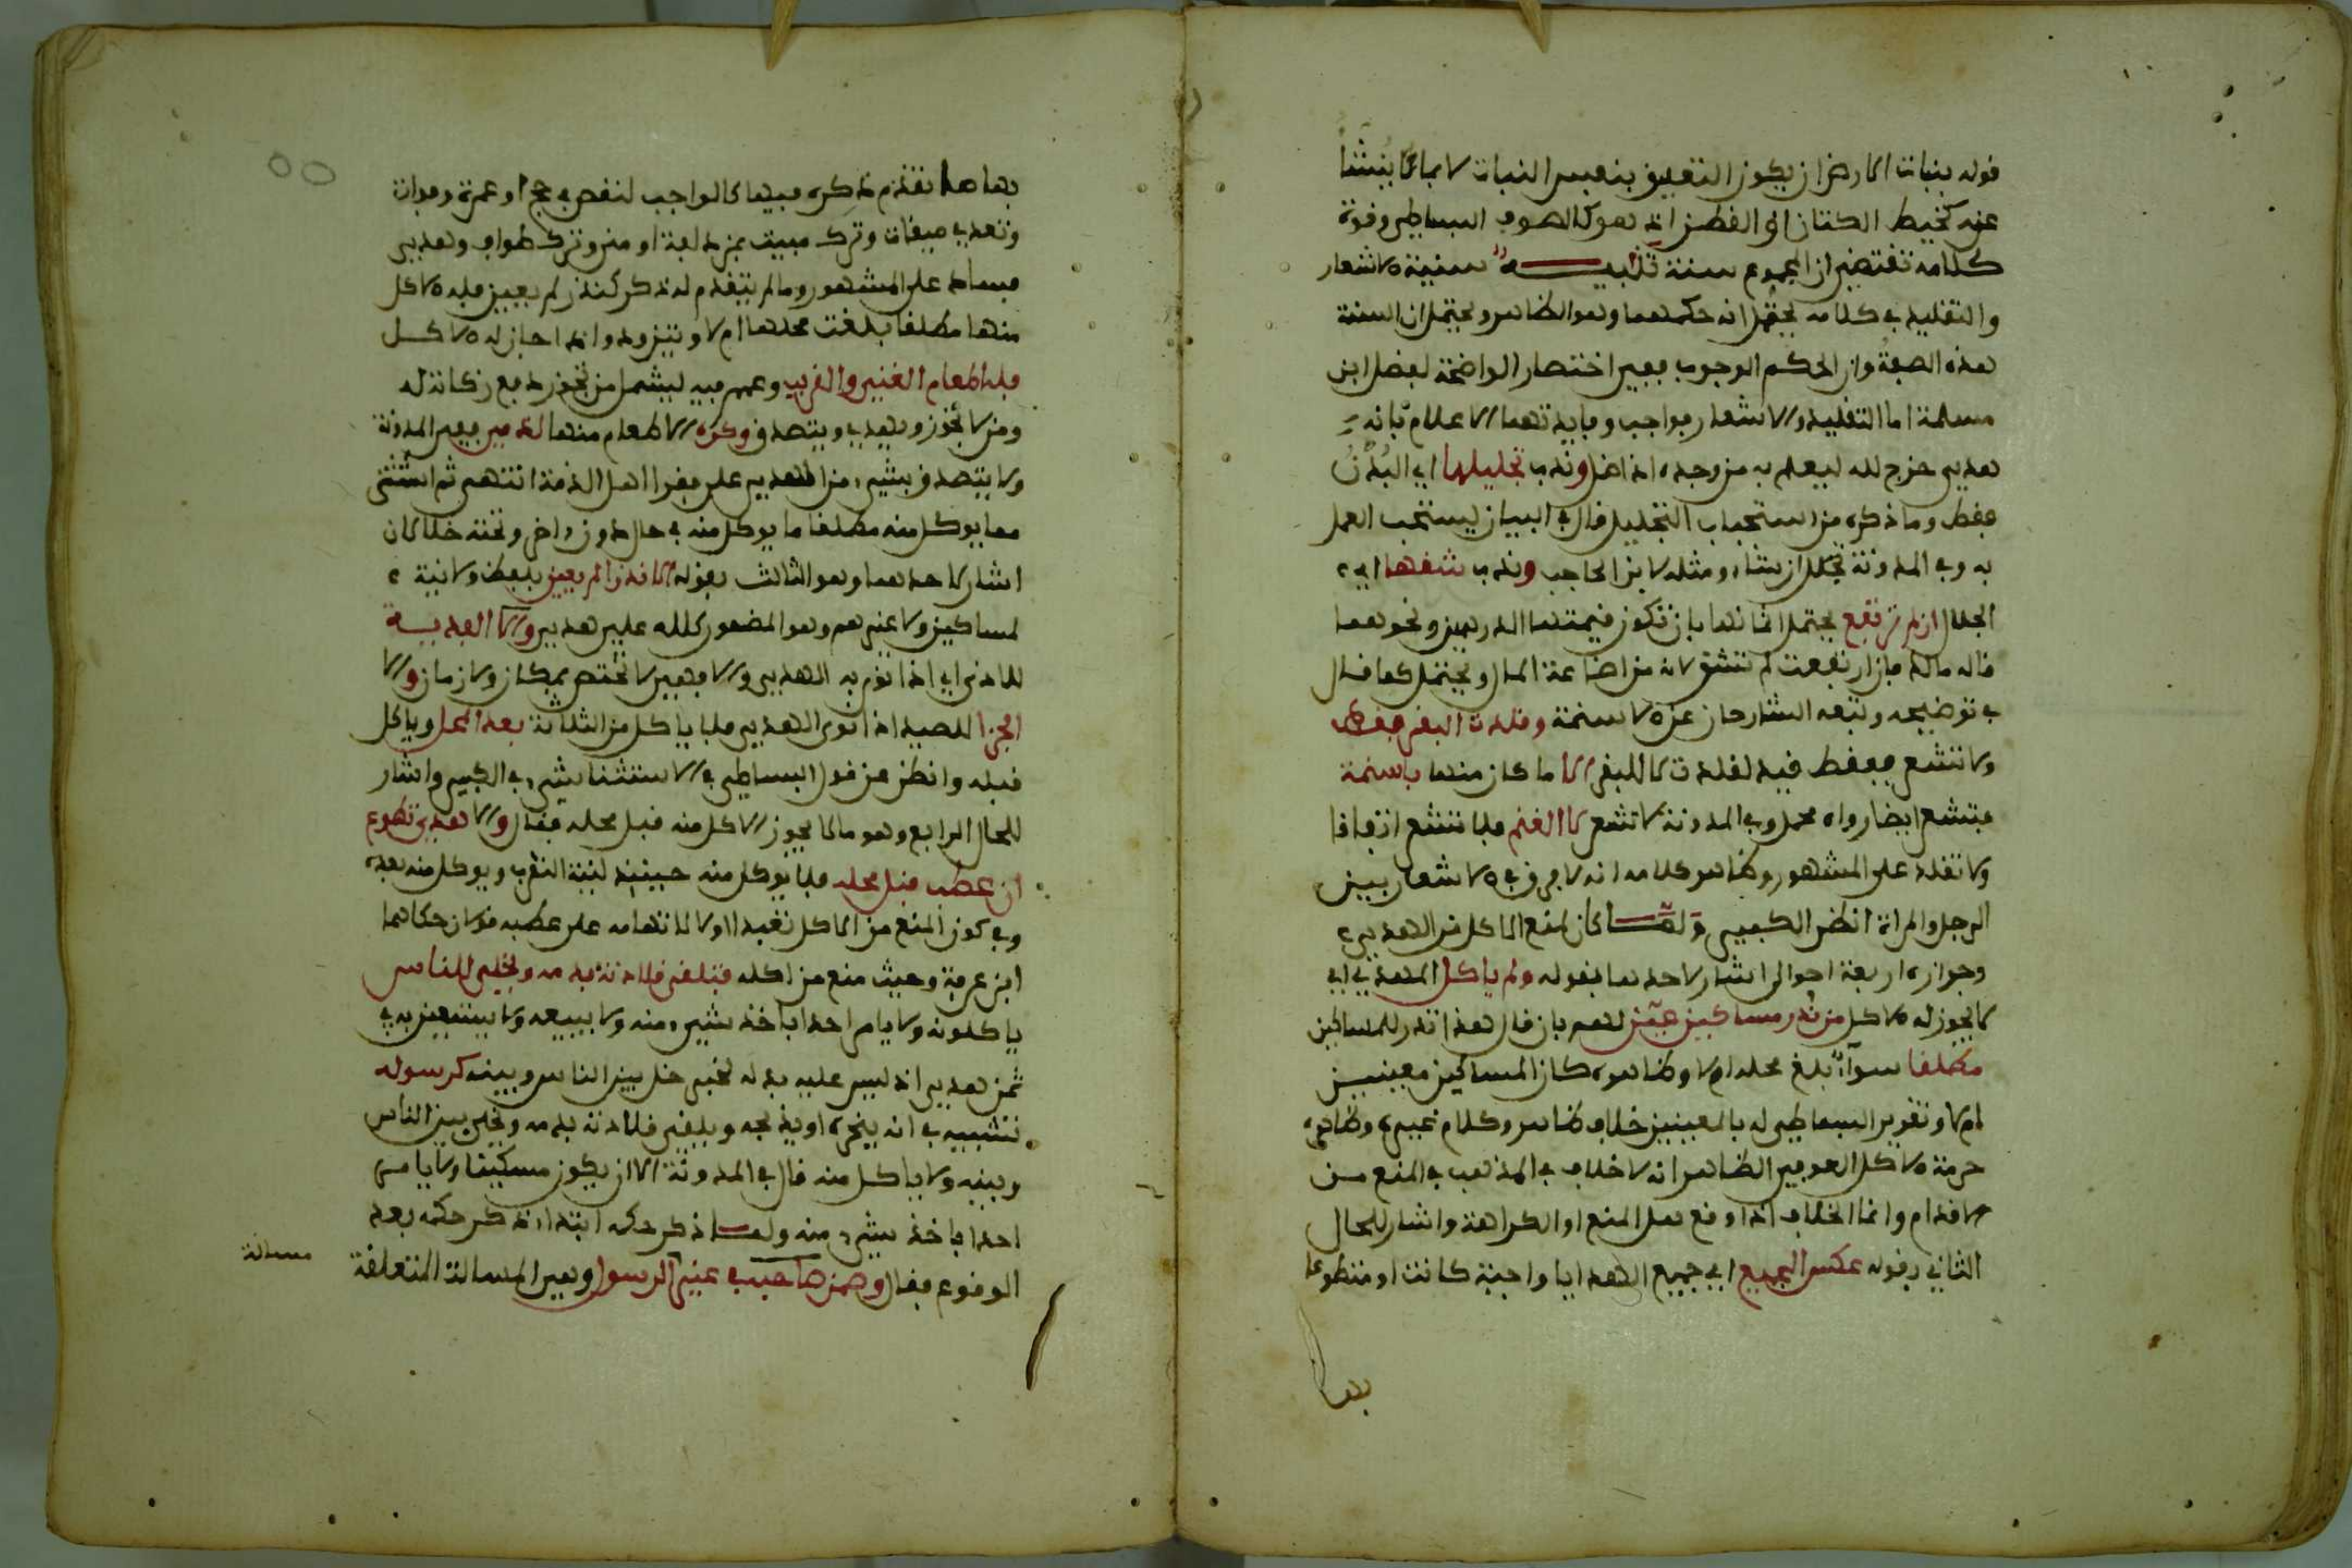 قوله بنبات الارض ان يكون التعليق بنفس النبات لا بما ينشأ
عنه كخيط الكتان او القطن اذ هو كالصوف البساطي وقوة
كلامه تقتضي ان المجموع سنة تنبيه سنية الاشعار
والتقليد في كلامه يحتمل انه حكمهما وهو الظاهر ويحتمل ان السنة
هذه الصفة وان الحكم الوجوب ففي اختصار الواضحة لفضل ابن
مسلمة اما التقليد والاشعار فواجب وفايدتهما الاعلام بانه
هدي خرج لله ليعلم به من وجده اذا ضل وندب تجليلها اي البدن
فقط وما ذكره من استحباب التجليل قال في البيان يستحب العمل
به وفي المدونة تجلل ان شاء ومثله لابن الحاجب وندب شقها اي
الجلال ان لم ترتفع يحتمل اثمانها بان تكون قيمتها الدرهمين ونحوهما
قاله مالك فان ارتفعت لم تشق لانه من اضاعة المال ويحتمل كما قال
في توضيحه وتبعه الشارحان عن الاسنمة وقلدت البقر فقط
ولا تشعر ففقط قيد لقلدت لا للبقر الا ما كان منها باسنمة
فتشعر ايضا رواه محمد وفي المدونة لا تشعر لا الغنم فلا تشعر اتفاقا
ولا تقلد على المشهور وظاهر كلامه انه لا فرق في الاشعار بين
الرجل والمراة انظر الكبير ولما كان لمنع الاكل من الهدي
وجوازه اربعة احوال اشار لاحدها بقوله ولم ياكل المهدي اي
لا يجوز له الاكل من نذر مساكين عين لهم بان قال هذا نذر للمساكين
مطلقا سواء بلغ محله ام لا وظاهره كان المساكين معينين
ام لا وتقرير البساطي له بالمعينين خلاف ظاهر وكلام غيره وظاهره
حرمة الاكل العوفي الظاهر انه لا خلاف في المذهب في المنع من
الاقدام وانما الخلاف اذا وقع هل المنع او الكراهة واشار للحال
الثاني بقوله عكس الجميع اي جميع الهدايا واجبة كانت او متطوعا
بها
بها مما تقدم ذكره فيها كالواجب لنقص في حج او عمرة وفوات
وتعدي ميقات وترك مبيت بمزدلفة او منى وترك طواف وهدي
فساد على المشهور وما لم يتقدم له ذكر كنذر لم يعين فله الاكل
منها مطلقا بلغت محلها ام لا ويتزود واذا جاز له الاكل
فله اطعام الغني والقريب وعمم فيه ليشمل من تجوز دفع زكاته له
ومن لا تجوز ويهدي ويتصدق وكره الاطعام منها لذمي ففي المدونة
ولا يتصدق بشيء من الهدي على فقراء اهل الذمة انتهى ثم استثنى
مما يوكل منه مطلقا ما يوكل منه في حال دون اخر وتحته حالان
اشار لاحدهما وهو الثالث بقوله الا نذرا لم يعين بلفظ ولا نية
لمساكين ولا غيرهم وهو المضمون كلله علي هدي والا الفدية
للاذى اي اذا نوى به الهدي والا فهي لا تختص بمكان ولا زمان والا
الجزاء للصيد اذا نوى الهدي فلا ياكل من الثلاثة بعد المحل وياكل
قبله وانظر عن قول البساطي في الاستثنا شيء في الكبير واشار
للحال الرابع وهو ما لا يجوز الاكل منه قبل محله فقال والا هدي تطوع
ان عطب قبل محله فلا يوكل منه حينيذ لنية التقرب ويوكل منه بعده
وفي كون المنع من الاكل تعبدا او لا لاتهامه على عطبه قولان حكاهما
ابن عرفة وحيث منع من اكله فتلقى قلادته بدمه ويخلى للناس
ياكلونه ولا يامر احدا ياخذ شيء منه ولا يبيعه ولا يستعين به في
ثمن هدي اذ ليس عليه بدله تخيير خل بين الناس وبينه كرسوله
تشبيه في انه ينحره او يذبحه ويلقي قلادته بدمه ويخلي بين الناس
وبينه ولا ياكل منه قال في المدونة الا ان يكون مسكينا ولا يامر
احدا ياخذ شيء منه ولما ذكر حكمه ابتداء ذكر حكمه بعد
الوقوع فقال وضمن صاحبه في غير الرسول وهي المسالة المتعلقة
مسالة